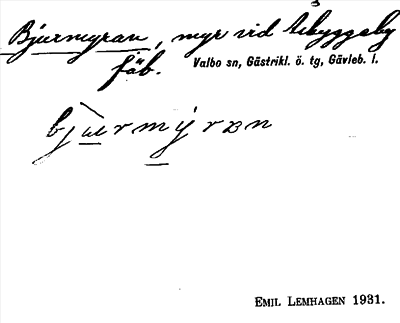 Bjurmyran, myr vid Åbyggeby
fäb. Valbo sn, Gästrikl. ö. tg, Gävleb. l.
bju̠rm̠ýrɑn
EMIL LEMHAGEN 1931.